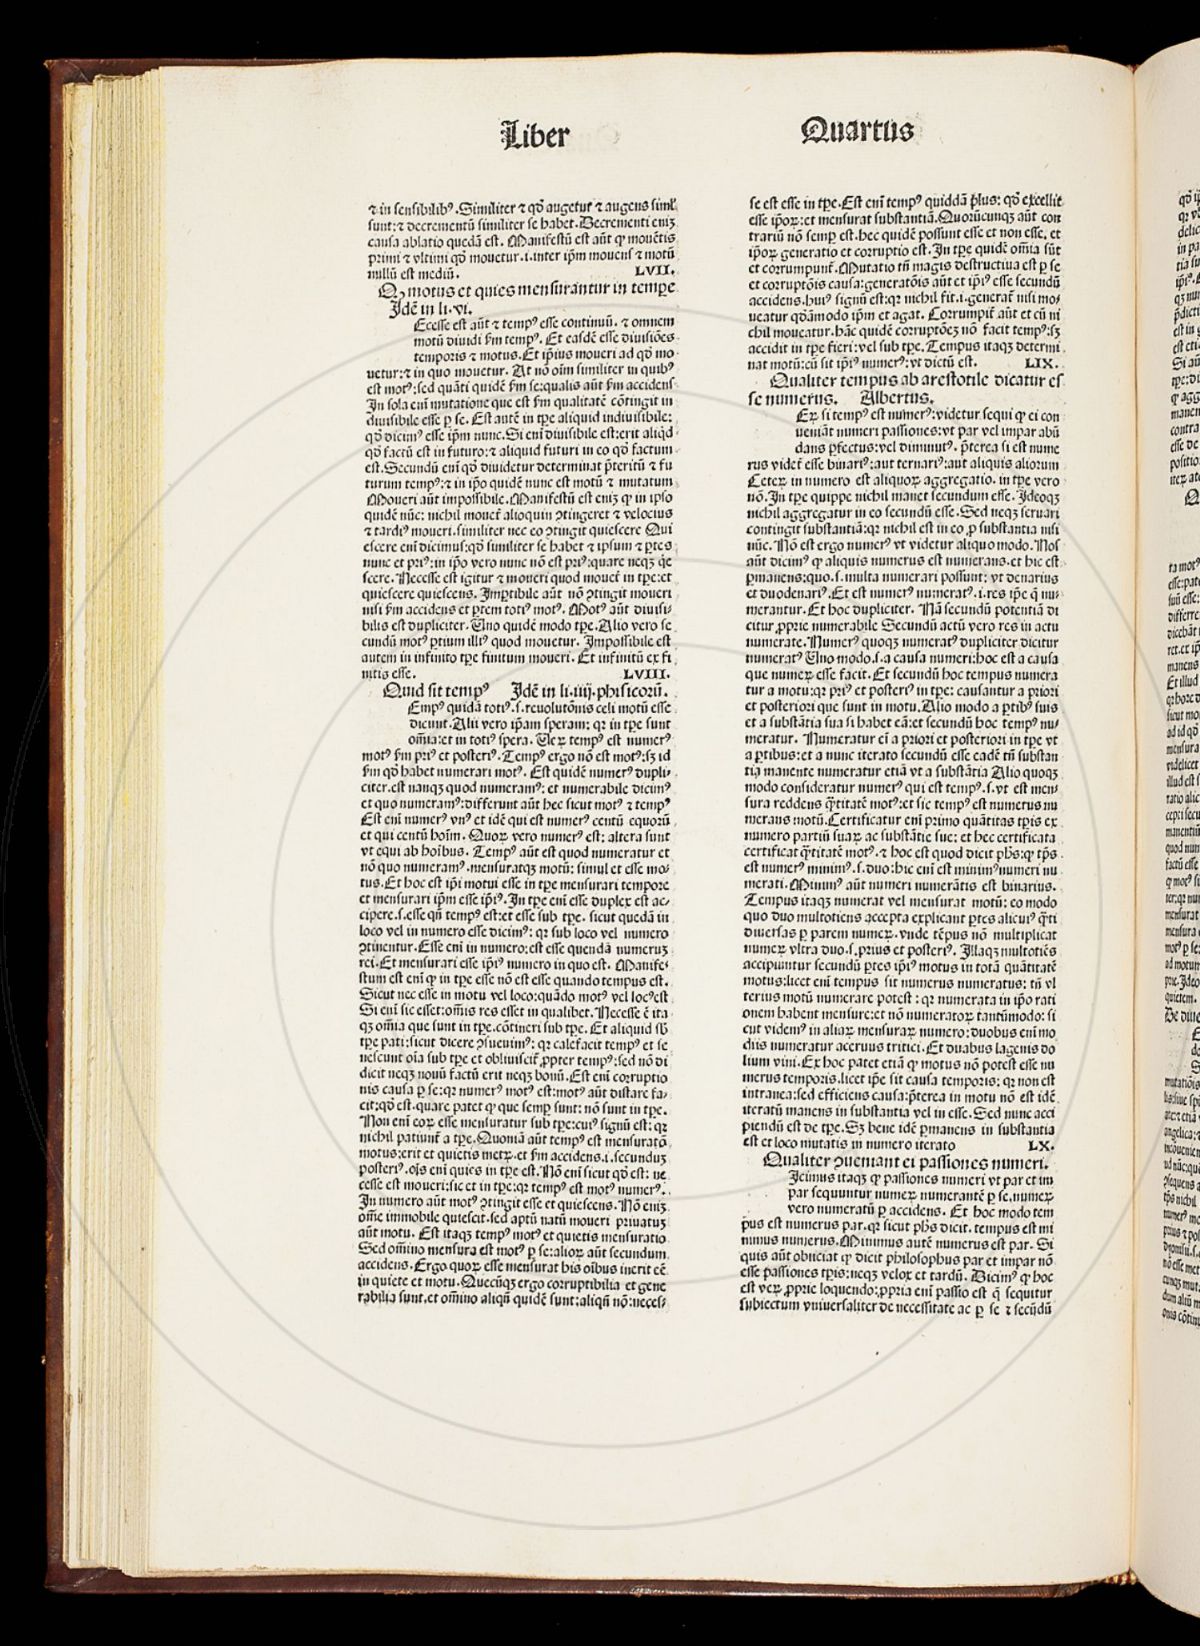 Liber Quartus
⁊ in sensibilibꝰ. Similiter ⁊ qđ augetur ⁊ augens simĺ
sunt: ⁊ decrementū similiter se habet. Decrementi eniʒ
causa ablatio quedā est. Manifestū est aūt ꝙ mouētis
primi ⁊ vltimi qđ mouetur .i. inter ip̄m mouens ⁊ motū
nullū est mediū. LVII.
Q motus et quies mensurantur in temꝑe
Idē in li. vi.
Ecesse est aūt ⁊ tempꝰ esse continuū. ⁊ omnem
motū diuidi ẜm tempꝰ. Et easdē esse diuisiōes
temporis ⁊ motus. Et ipsius moueri ad qđ mo-
uetur: ⁊ in quo mouetur. At nō oīm similiter in quibꝰ
est motꝰ: sed quāti quidē ẜm se: qualis aūt ẜm accidens
In sola eni mutatione que est ẜm qualitatē cōtingit in
diuisibile esse ꝑ se. Est autē in tꝑe aliquid indiuisibile:
qđ dicimꝰ esse ip̄m nunc. Si eni diuisibile est: erit aliqđ
qđ factū est in futuro: ⁊ aliquid futuri in eo qđ factum
est. Secundū eni qđ diuidetur determinat p̄teritū ⁊ fu
turum tempꝰ: ⁊ in ip̄o quidē nunc est motū ⁊ mutatum
Moueri aūt impossibile. Manifestū est eniʒ ꝙ in ipso
quidē nūc: nichil mouet̄ alioquin ꝯtingeret ⁊ velocius
⁊ tardiꝰ moueri. similiter nec eo ꝯtingit quiescere Qui
escere eni dicimus: qđ similiter se habet ⁊ ipsum ⁊ ꝑtes
nunc et priꝰ: in ip̄o vero nunc nō est priꝰ: quare neqʒ q̇e
scere. Necesse est igitur ⁊ moueri quod mouet̄ in tꝑe: et
quiescere quiescens. Imꝑtibile aūt nō ꝯtingit moueri
nisi ẜm accidens et ꝑtem totiꝰ motꝰ. Motꝰ aūt diuisi-
bilis est dupliciter. Uno quidē modo tꝑe. Alio vero se
cundū motꝰ ꝑtium illiꝰ quod mouetur. Impossibile est
autem in infinito tꝑe finitum moueri. Et infinitū ex fi
nitis esse. LVIII.
Quid sit tempꝰ Idē in li. iiij. phisicorū.
Empꝰ quidā totiꝰ .s. reuolutōnis celi motū esse
dicunt. Alii vero ip̄am speram: qꝛ in tꝑe sunt
om̄ia: et in totiꝰ spera. Ueꝝ tempꝰ est numerꝰ
motꝰ ẜm priꝰ et posteriꝰ. Tempꝰ ergo nō est motꝰ: sʒ id
ẜm qđ habet numerari motꝰ. Est quidē numerꝰ dupli-
citer. est nanqʒ quod numeramꝰ: et numerabile dicimꝰ
et quo numeramꝰ: differunt aūt hec sicut motꝰ ⁊ tempꝰ
Est eni numerꝰ vnꝰ et idē qui est numerꝰ centū equorū
et qui centū hoīm. Quoꝝ vero numerꝰ est: altera sunt
vt equi ab hoībus. Tempꝰ aūt est quod numeratur et
nō quo numeramꝰ. mensuratqʒ motū: simul et esse mo-
tus. Et hoc est ip̄i motui esse in tꝑe mensurari tempore
et mensurari ip̄m esse ip̄iꝰ. In tꝑe eni esse duplex est ac-
cipere .s. esse qn̄ tempꝰ est: et esse sub tꝑe. sicut quedā in
loco vel in numero esse dicimꝰ: qꝛ sub loco vel numero
ꝯtinentur. Esse eni in numero: est esse quendā numeruʒ
rei. Et mensurari esse ip̄iꝰ numero in quo est. Manife-
stum est eni ꝙ in tꝑe esse nō est esse quando tempus est.
Sicut nec esse in motu vel loco: quādo motꝰ vel locꝰ est
Si eni sic esset: om̄is res esset in qualibet. Necesse ē ita
qʒ om̄ia que sunt in tꝑe. cōtineri sub tꝑe. Et aliquid sb̄
tꝑe pati: sicut dicere ꝯsueuimꝰ: qꝛ calefacit tempꝰ et se
nescunt oīa sub tꝑe et obliuiscit̄ ꝓpter tempꝰ: sed nō di
dicit neqʒ nouū factū erit neqʒ bonū. Est eni corruptio
nis causa ꝑ se: qꝛ numerꝰ motꝰ est: motꝰ aūt distare fa-
cit: qđ est. quare patet ꝙ que semꝑ sunt: nō sunt in tꝑe.
Non eni eoꝝ esse mensuratur sub tꝑe: cuiꝰ signū est: qꝛ
nichil patiunt̄ a tꝑe. Quoniā aūt tempꝰ est mensuratō
motus: erit et quietis metꝝ. et ẜm accidens .i. secunduʒ
posteriꝰ. oīs eni quies in tꝑe est. Nō eni sicut qđ est: ne
cesse est moueri: sic et in tꝑe: qꝛ tempꝰ est motꝰ numerꝰ.
In numero aūt motꝰ ꝯtingit esse et quiescens. Nō eniʒ
om̄e immobile quiescit. sed aptū natū moueri priuatuʒ
aūt motu. Est itaqʒ tempꝰ motꝰ et quietis mensuratio
Sed om̄ino mensura est motꝰ ꝑ se: alioꝝ aūt secundum
accidens. Ergo quoꝝ esse mensurat his oībus inerit eē
in quiete et motu. Quecūqʒ ergo corruptibilia et gene
rabilia sunt. et om̄ino aliqn̄ quidē sunt: aliqn̄ nō: neces-
se est esse in tꝑe. Est eni tempꝰ quiddā plus: qđ excellit
esse ip̄oꝝ: et mensurat substantiā. Quorūcunqʒ aūt con
trariū nō semꝑ est. hec quidē possunt esse et non esse. et
ip̄oꝝ generatio et corruptio est. In tꝑe quidē om̄ia sūt
et corrumpunt̄. Mutatio tn̄ magis destructiua est ꝑ se
et corruptōis causa: generatōis aūt et ip̄iꝰ esse secundū
accidens. huiꝰ signū est: qꝛ nichil fit .i. generat̄ nisi mo-
ueatur qđāmodo ip̄m et agat. Corrumpit̄ aūt et cū ni
chil moueatur. hāc quidē corruptōeʒ nō facit tempꝰ: sʒ
accidit in tꝑe fieri: vel sub tꝑe. Tempus itaqʒ determi
nat motū: cū sit ip̄iꝰ numerꝰ: vt dictū est. LIX.
Qualiter tempus ab arestotile dicatur es
se numerus. Albertus.
Eꝝ si tempꝰ est numerꝰ: videtur sequi ꝙ ei con
ueniāt numeri passiones: vt par vel impar abū
dans ꝑfectus: vel diminutꝰ. p̄terea si est nume
rus videt̄ esse binariꝰ: aut ternariꝰ: aut aliquis aliorum
Ceteꝝ in numero est aliquoꝝ aggregatio. in tꝑe vero
nō. In tꝑe quippe nichil manet secundum esse. Ideoqʒ
nichil aggregatur in eo secundū esse. Sed neqʒ seruari
contingit substantiā: qꝛ nichil est in eo ꝓ substantia nisi
nūc. Nō est ergo numerꝰ vt videtur aliquo modo. Nos
aūt dicimꝰ ꝙ aliquis numerus est numerans. et hic est
ꝑmanens: quo .s. multa numerari possunt: vt denarius
et duodenariꝰ. Et est numerꝰ numeratꝰ .i. res ip̄e q̄ nu-
merantur. Et hoc dupliciter. Nā secundū potentiā di
citur ꝓprie numerabile Secundū actū vero res in actu
numerate. Numerꝰ quoqʒ numeratꝰ dupliciter dicitur
numeratꝰ Uno modo .s. a causa numeri: hoc est a causa
que numeꝝ esse facit. Et secundū hoc tempus numera
tur a motu: qꝛ priꝰ et posteriꝰ in tꝑe: causantur a priori
et posteriori que sunt in motu. Alio modo a ꝑtibꝰ suis
et a substātia sua si habet eā: et secundū hoc tempꝰ nu-
meratur. Numeratur eni a priori et posteriori in tꝑe vt
a ꝑtibus: et a nunc iterato secundū esse eadē tn̄ substan
tia manente numeratur etiā vt a substātia Alio quoqʒ
modo consideratur numerꝰ qui est tempꝰ .s. vt est men-
sura reddens q̄titatē motꝰ: et sic tempꝰ est numerus nu
merans motū. Certificatur eni primo quātitas tꝑis ex
numero partiū suaꝝ ac substātie sue: et hec certificata
certificat q̄titatē motꝰ. ⁊ hoc est quod dicit ph̄s: ꝙ tp̄s
est numerꝰ minimꝰ .s. duo: hic eni est minimꝰ numeri nu
merati. Minimꝰ aūt numeri numerātis est binarius.
Tempus itaqʒ numerat vel mensurat motū: eo modo
quo duo multotiens accepta explicant ꝑtes alicuiꝰ q̄ti
diuersas ꝑ parem numeꝝ. vnde tēpus nō multiplicat
numeꝝ vltra duo .s. prius et posteriꝰ. Illaqʒ multotiēs
accipiuntur secundū ꝑtes ip̄iꝰ motus in totā quātitatē
motus: licet eni tempus sit numerus numeratus: tn̄ vl
terius motū numerare potest: qꝛ numerata in ip̄o rati
onem habent mensure: et nō numeratoꝝ tantūmodo: si
cut videmꝰ in aliaꝝ mensuraꝝ numero: duobus eni mo
diis numeratur aceruus tritici. Et duabus lagenis do
lium vini. Ex hoc patet etiā ꝙ motus nō potest esse nu
merus temporis. licet ip̄e sit causa temporis: qꝛ non est
intranea: sed efficiens causa: p̄terea in motu nō est idē
iteratū manens in substantia vel in esse. Sed nunc acci
piendū est de tꝑe. Sʒ bene idē ꝑmanens in substantia
est et loco mutatis in numero iterato LX.
Qualiter ꝯueniant ei passiones numeri.
Icimus itaqʒ ꝙ passiones numeri vt par et im
par sequuntur numeꝝ numerantē ꝑ se. numeꝝ
vero numeratū ꝑ accidens. Et hoc modo tem
pus est numerus par. qꝛ sicut ph̄s dicit. tempus est mi
nimus numerus. Minimus autē numerus est par. Si
quis aūt obiiciat ꝙ dicit philosophus par et impar nō
esse passiones tꝑis: neqʒ velox et tardū. Dicimꝰ ꝙ hoc
est veꝝ ꝓprie loquendo: ꝓpria eni passio est q̄ sequitur
subiectum vniuersaliter de necessitate ac ꝑ se ⁊ secūdū